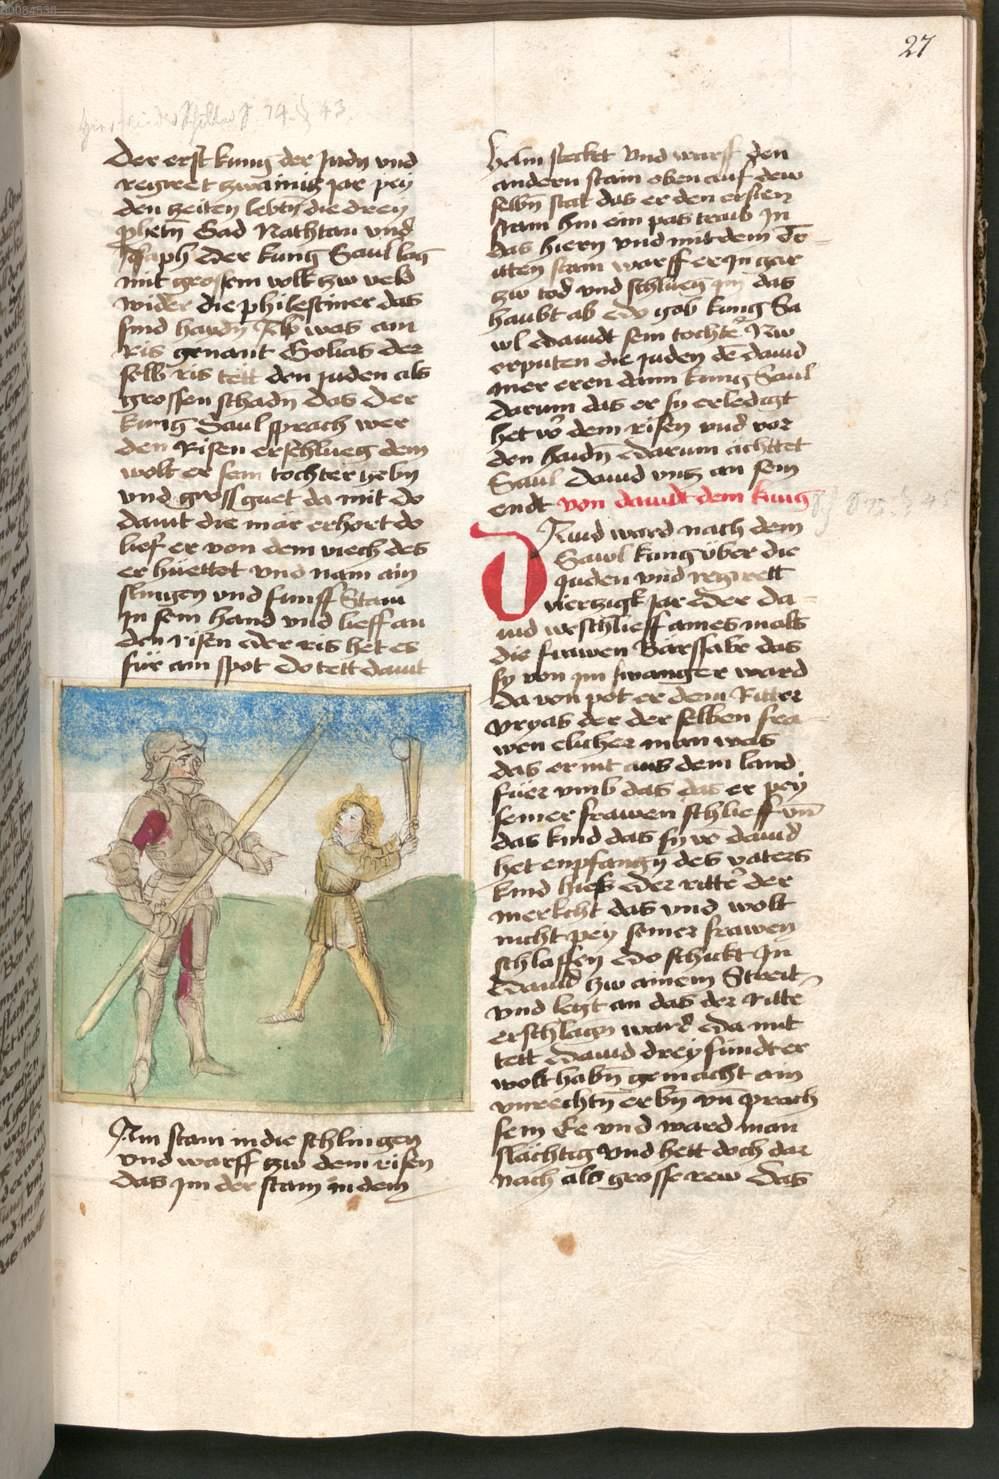 27
Der erst kung der Judn und
regiret zwainizg jar pey
den zeiten lebtn die drey
phetn Gad Nathan und
Asaph Der kung Saul lag
mit grossem volk zw veld
wider die philestiner das
sind haydn Also was ain
Ris genant Golias der
selb ris tett den juden als
grossen schadn Das Der
kung Saul sprach wer
den Risen erschlueg dem
wolt er sein tochter gebn
und gross guet da mit do
dauit die mär erhort do
lief er von dem viech des
er hüettet und nam ain
slingen und funff Stain
In sein hand und lieff an
den risen Der ris het es
für ain spot Do tett dauit
Ain stain in die schlingen
und warff zw dem risen
das jm der stain in dem
helm stecket Und warff den
andern stain oben auf dew
selbn stat das er den ersten
stain hin ein pas traib In
das hiern und mit dem dr=
itten stain warff er In gar
zw tod und schlueg im das
haubt ab Do gab kung Sa
wl Dauidt sein tochter Nw
erputen die juden dem dauid
mer eren dann kung Saul
darum das er sy erledigt
het vor dem risen und vor
den haidn Darum ächttet
Saul Dauid untz an sein
endt von dauidt dem kung
Dauid ward nach dem
Sawl kung über die
juden und regirett
vierzigk jar Der da=
uid weschlieff aines mals
die frawen Bärssabe das
sy von jm swanger ward
Da von pot er dem Ritter
vryas der der selben fra
wen elicher man was
das er nit aus dem land
füer umb das das er pey
seiner frawen schlieff un
das kind das sy vo dauid
het enpfangn des vaters
kind hiess Der ritter der
merkcht das und wolt
nicht pey seiner frawen
schlaffen Do schickt In
Dauid zw ainem Streit
und legt an das der ritte
erschlagn ward Da mit
tett Dauid drey sündt er
wolt habn gemacht ain
unrechtn erbn un prach
sein Ee und ward man
slachtig Und hett doch dar
nach als grosse rew Das